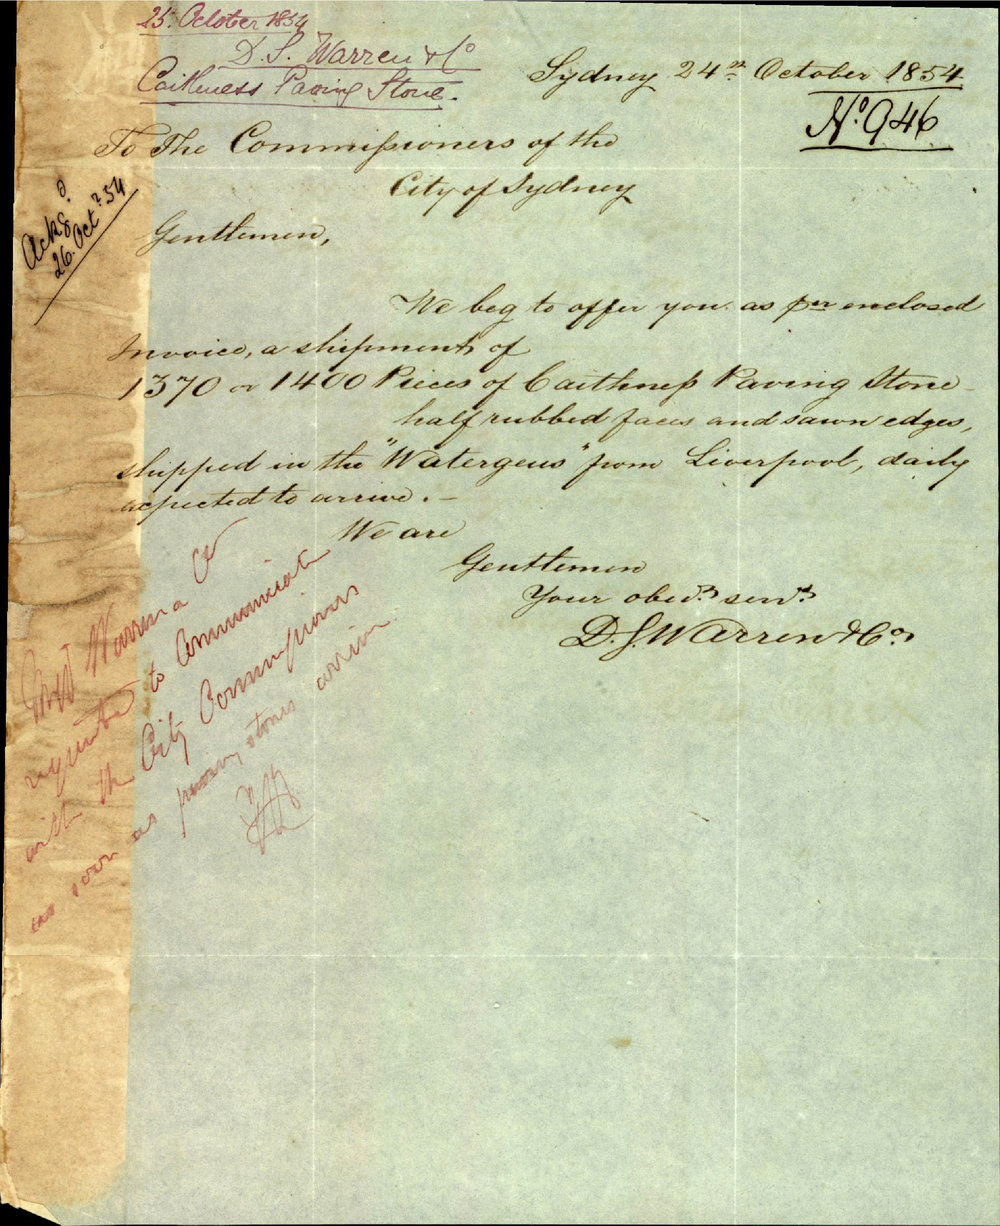 25. October 1854
D. S. Warren & Co
Caithness Paving Stone.
Sydney 24th October 1854
No. 946
To The Commissioners of the
City of Sydney
Ackd.
26. Oct. 54
Gentlemen,
We beg to offer you as per enclosed
Invoice, a shipment of
1370 or 1400 Pieces of Caithness Paving Stone
half rubbed faces and sawn edges,
shipped in the "Watergeus" from Liverpool, daily
expected to arrive. –
We are
Gentlemen
Your obedt. servts
D. S. Warren & Co.
Warren & Co
requested to Communicate
with the City Commissioners
as soon as paving stones arrive